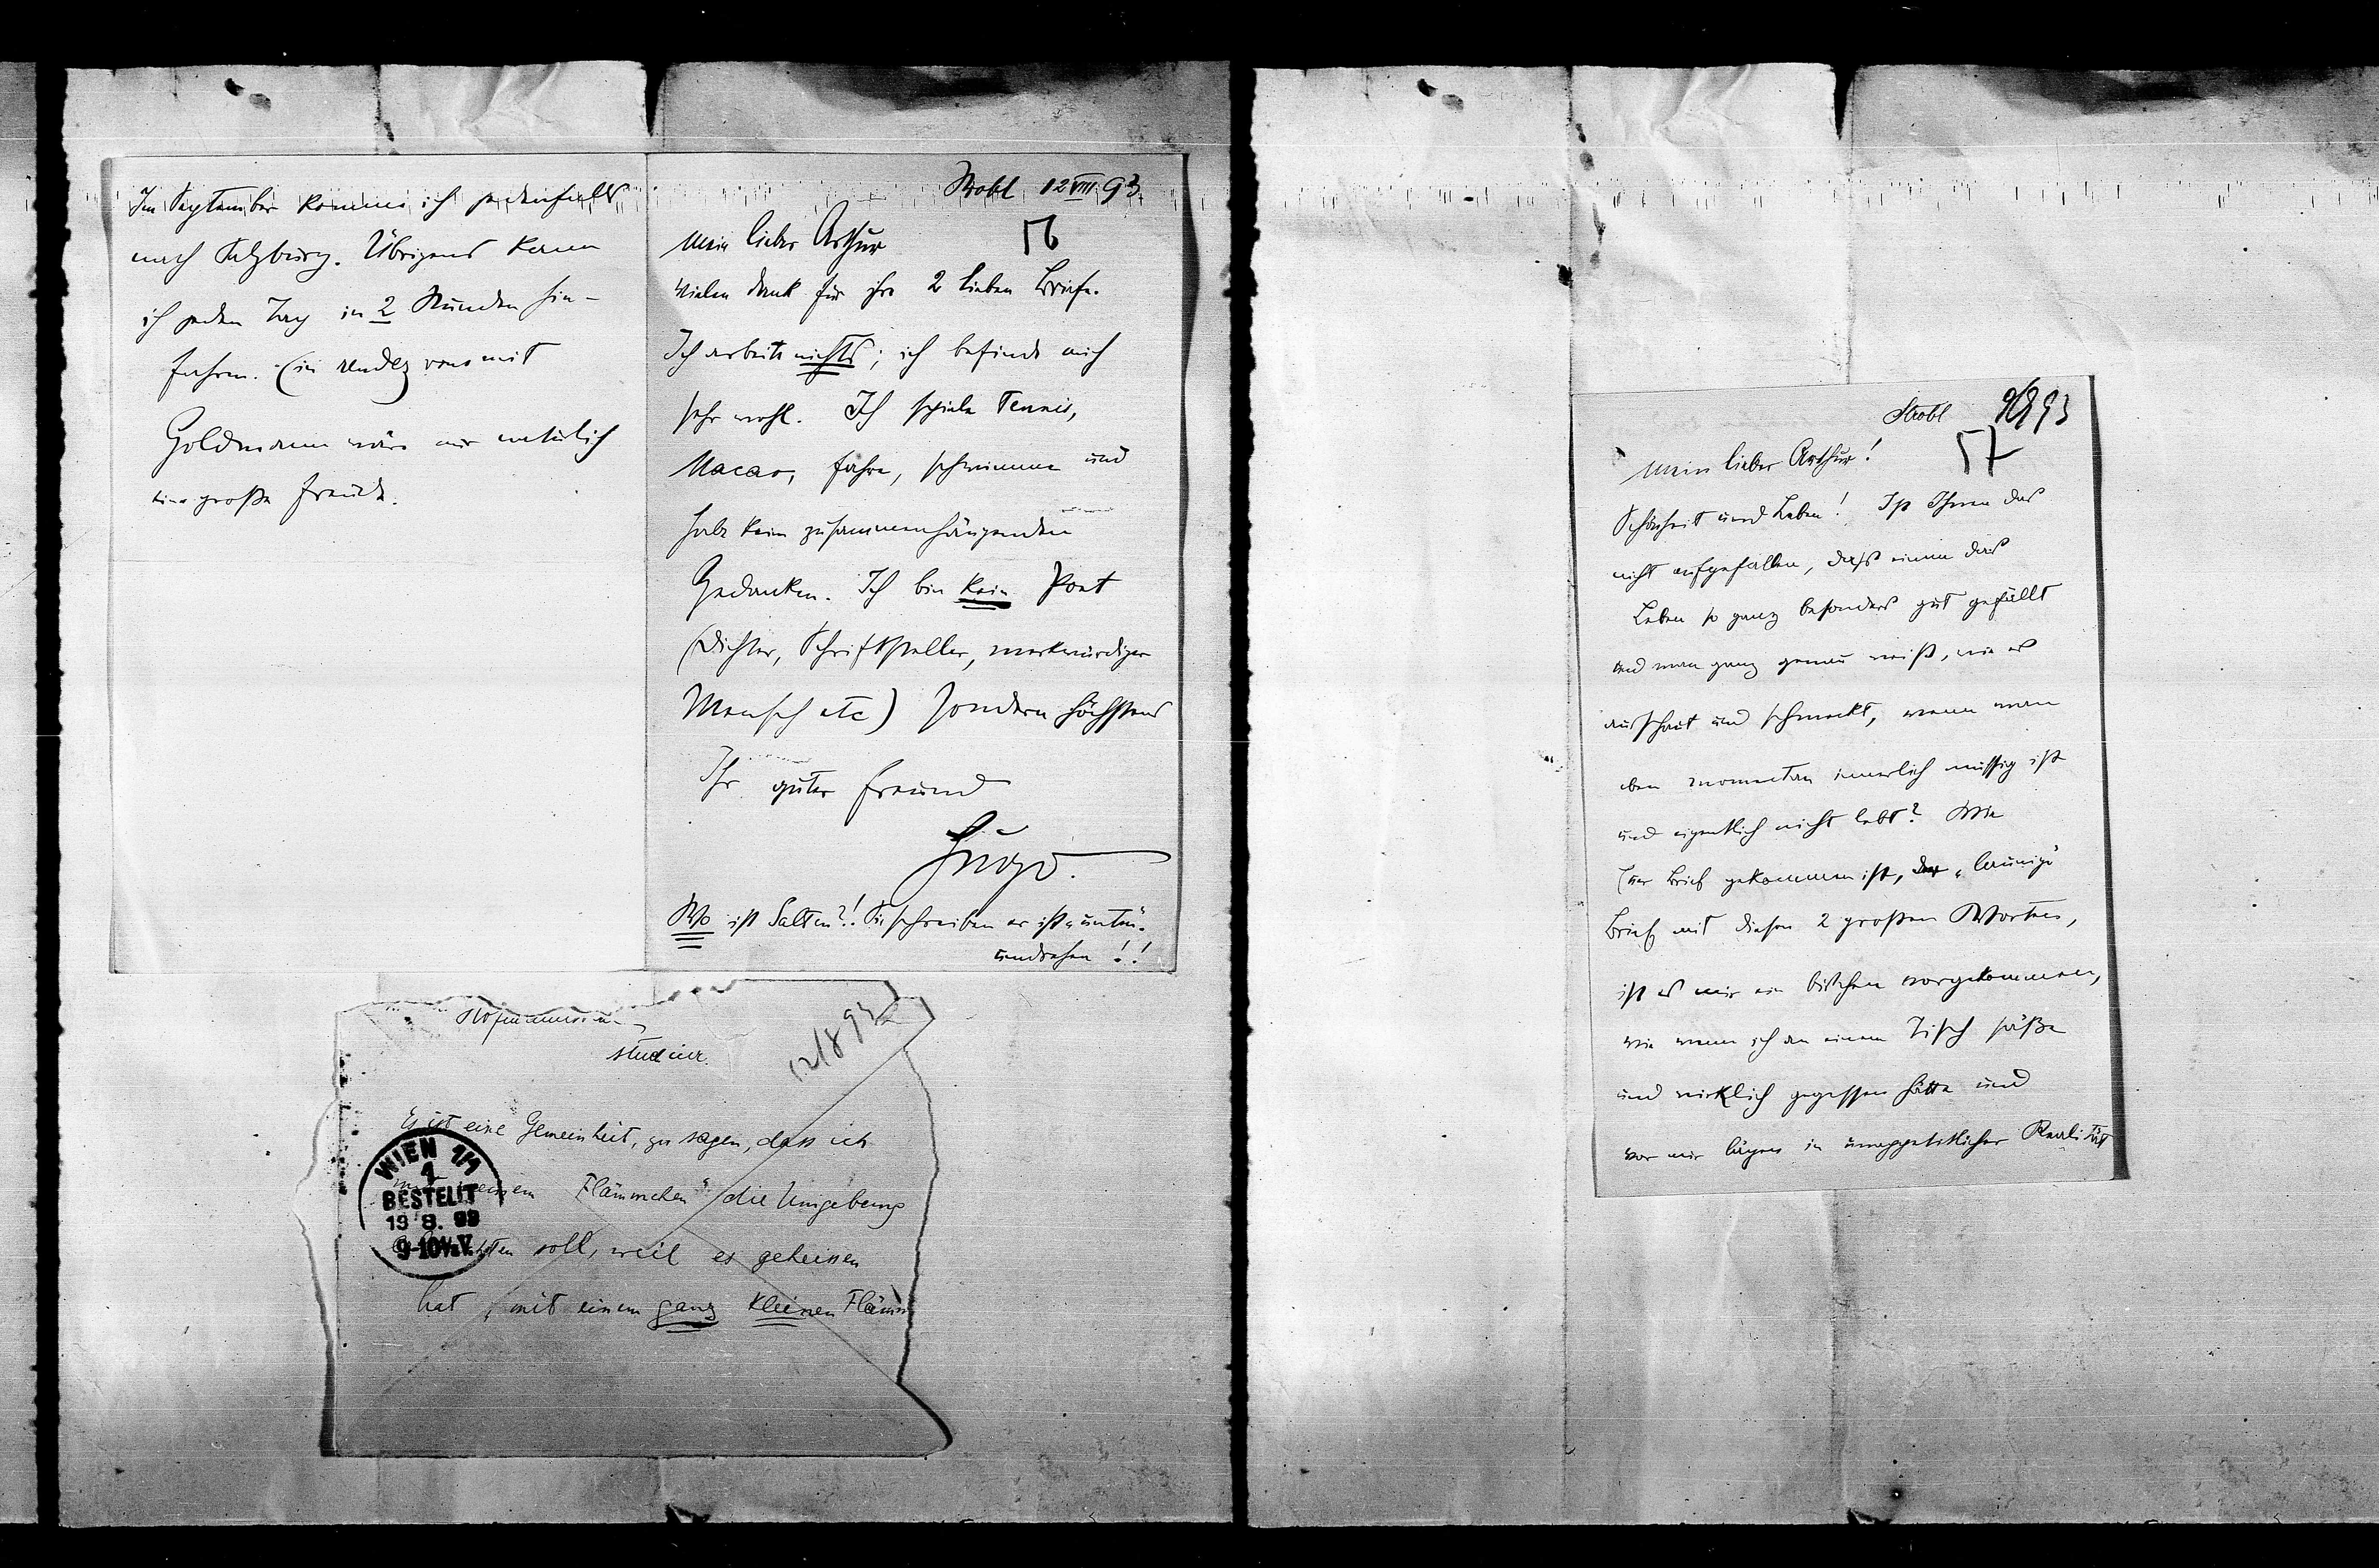 Im September komme ich jedenfalls
nach Salzburg. Übrigens kann
ich jeden Tag in 2 Stunden hin-
fahren. (ein rendez vous mit
Goldmann wäre mir natürlich
eine große Freude.
Strobl 12 VIII 93.
56
Mein lieber Arthur
Vielen Dank für ihre 2 lieben Briefe.
Ich arbeite nichts; ich befinde mich
sehr wohl. Ich spiele Tennis,
Macao, fahre, schwimme und
habe keine zusammenhängenden
Gedanken. Ich bin kein Poet
(Dichter, Schriftsteller, merkwürdiger
Mensch etc) sondern höchstens
Ihr guter Freund
Hugo.
Wo ist Salten?! Sie schreiben er ist „unten"
umdrehen!!
12/8 93
Es ist eine Gemeinheit, zu sagen, dass ich
mit meinem Flämmchen" die Umgebung
soll, weil es geheissen
hat, mit einem ganz kleinen Flämm
WIEN 1/1
4
BESTELLT
19 8. 93
9-10½V.
Strobl 93
57
Mein lieber Arthur!
Schönheit und Leben! Ist Ihnen das
nicht aufgefallen, dass einem das
Leben so ganz besonders gut gefällt
und man ganz genau weiß, wie es
ausschaut und schmeckt, wenn man
eben momentan innerlich müssig ist
und eigentlich nicht lebt? Wie
Ihr Brief gekommen ist, der „launige"
Brief mit diesen 2 großen Worten,
ist es mir ein bischen vorgekommen,
wie wenn ich an einem Tisch säße
und wirklich gegessen hätte und
vor mir lägen in unappetitlicher Realität